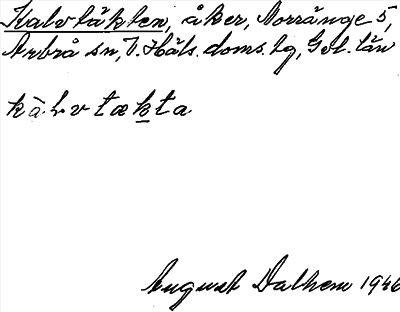 Kalvtäkten, åker, Norränge 5,
Arbrå sn, V. Häls. doms. lg, Gvl. län
kàlvtækta
August Dalhem 1946